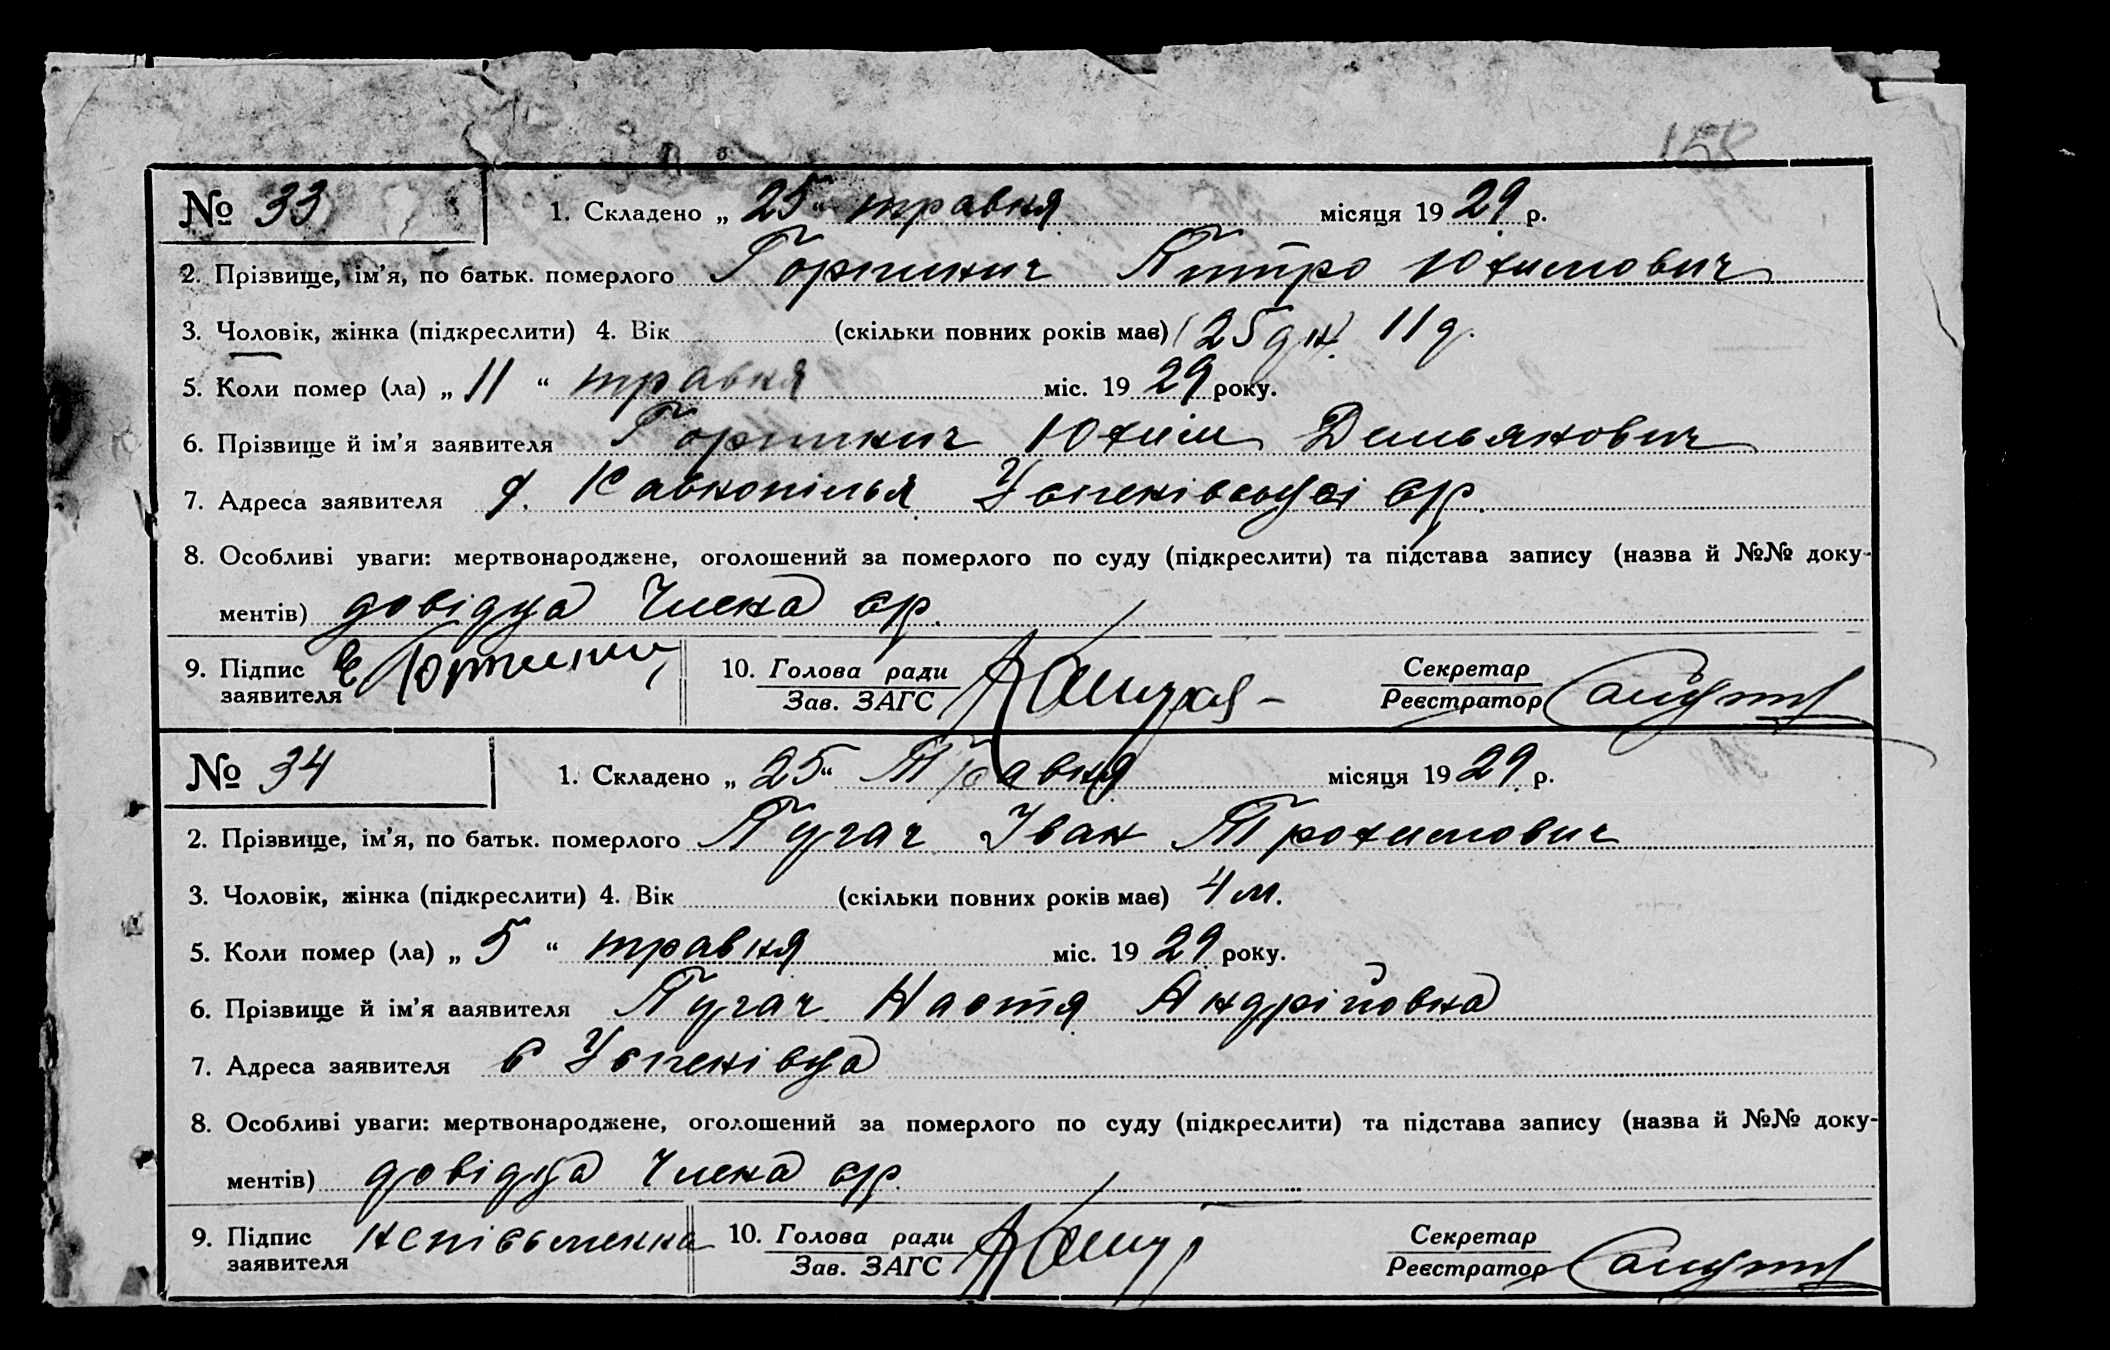 158
№ 33 1. Складено „ 25 “ травня місяця 19 29 р.
2. Прізвище, ім’я, по батьк. померлого Горпинич Питро Юхимович
3. Чоловік, жінка (підкреслити) 4. Вік (скільки повних років має) 11 д.
5. Коли помер (ла) „ 11 “ травня міс. 19 29 року.
6. Прізвище й ім’я заявителя Горпинич Юхим Демьянович
7. Адреса заявителя Успенівської ср.
8. Особливі уваги: мертвонароджене, оголошений за померлого по суду (підкреслити) та підстава запису (назва й №№ доку-
ментів) довідца Члена ср.
9. Підпис 10. Голова ради Секретар
заявителя Зав. ЗАГС Реєстратор
№ 34 1. Складено „ 25 “ Травня місяця 19 29 р.
2. Прізвище, ім’я, по батьк. померлого Пугач Іван Трохимович
3. Чоловік, жінка (підкреслити) 4. Вік (скільки повних років має) 4 м.
5. Коли помер (ла) „ 5 “ травня міс. 19 29 року.
6. Прізвище й ім’я заявителя Пугач Настя Андрійовна
7. Адреса заявителя с Успенівца
8. Особливі уваги: мертвонароджене, оголошений за померлого по суду (підкреслити) та підстава запису (назва й №№ доку-
ментів) довідца Члена ср.
9. Підпис неписьменна 10. Голова ради Секретар
заявителя Зав. ЗАГС Реєстратор